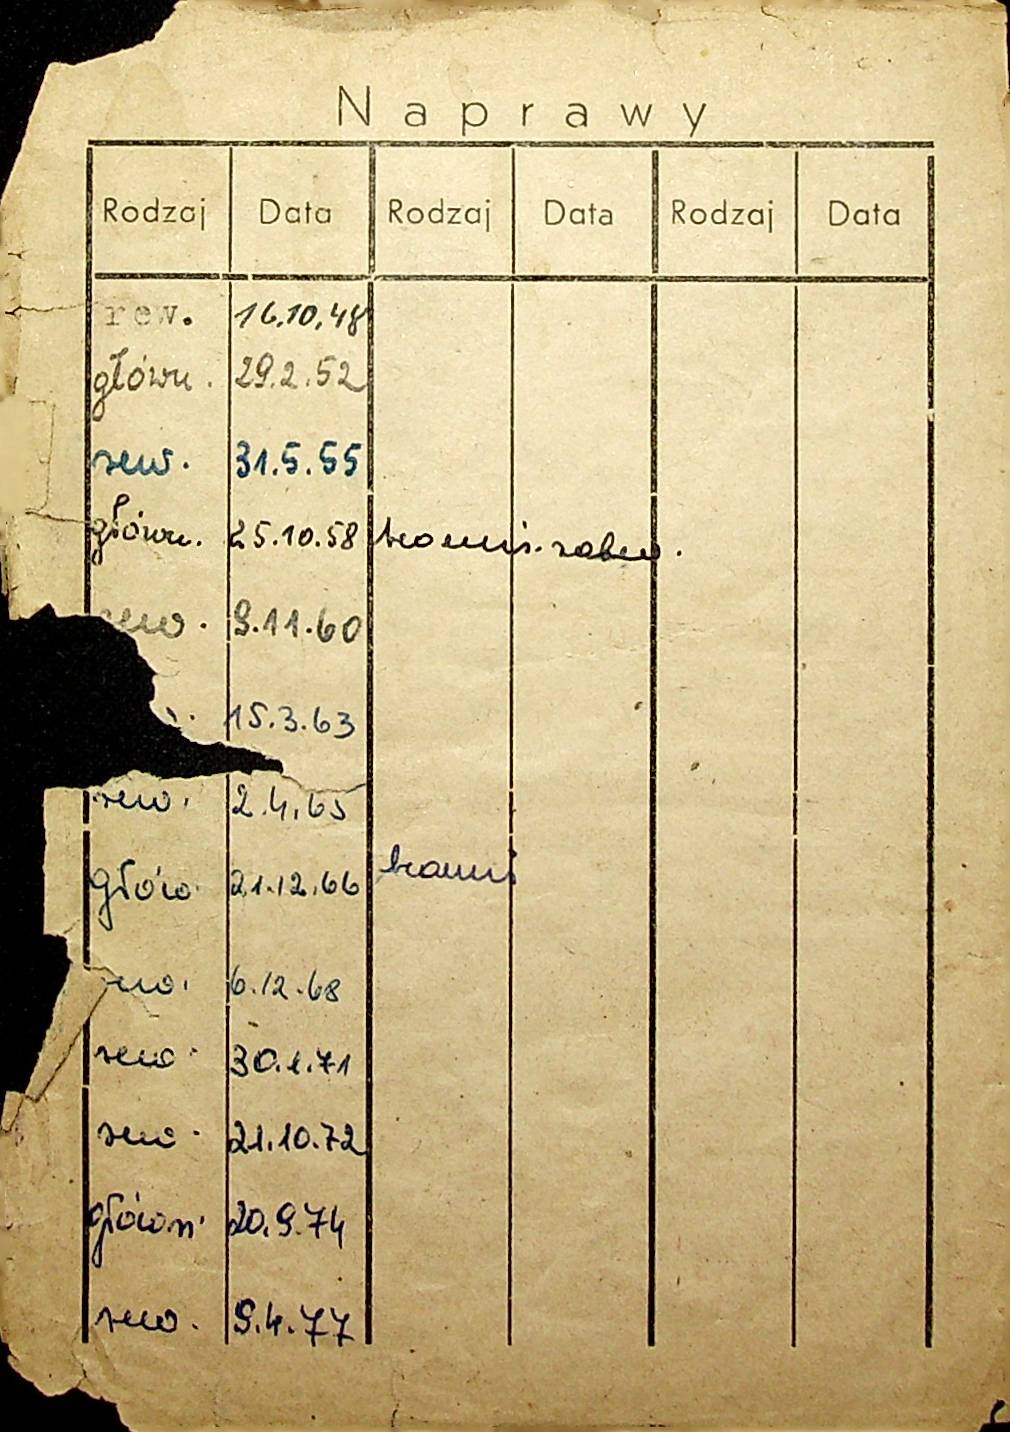 Naprawy
Rodzaj Data Rodzaj Data Rodzaj Data
rew. 16.10.48
główn. 29.2.52
rew. 31.5.55
główn. 25.10.58
rew. 9.11.60
15.3.63
rew. 2.4.65
głów. 21.12.66
rew. 6.12.68
rew. 30.1.71
rew. 21.10.72
główn. 20.9.74
rew. 9.4.77